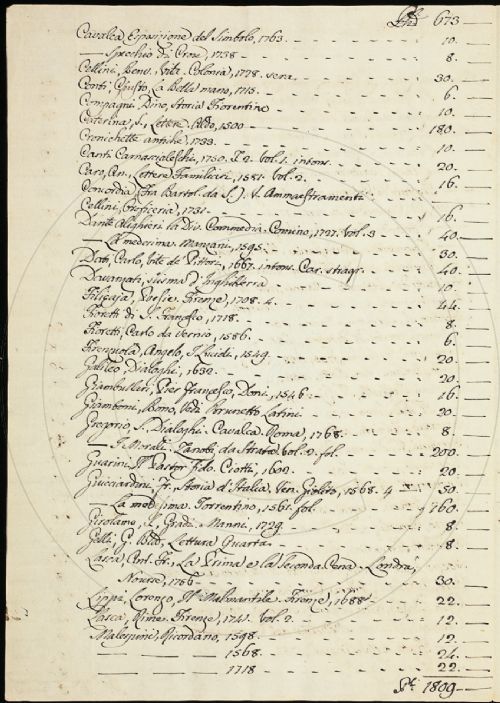 673
Cavalca Esposizione del Simbolo, 1763. 10.
— Specchio di Croce 1738 8.
Cellini, Benv. Vita. Colonia, 1728. 30.
Conti, Giusto, La Bella mano, 1715. 6.
Compagni, Dino, Storia Fiorentina 10.
Caterina, S., Lettere. Aldo, 1500 180.
Cronichette antiche, 1733. 10.
Canti Carnascialeschi, 1750. T. 2. Vol. 1. intons. 20.
Caro, An., Lettere Familiari, 1581. Vol. 2. 16.
Concordio (Fra Bartol. da S.) V. Ammaestramenti
Cellini, Oreficeria, 1731. 16.
Dante Alighieri la Div. Commedia. Comino, 1727. Vol. 3 40.
— La medesima. Manzani, 1595. 30.
Dati, Carlo, Vite de Pittori, 1667. intons. Car. strag. 40.
Davanzati, Scisma d'Inghilterra 10.
Filicaja, Poesie. Firenze, 1708. 4. 44.
Fioretti di S. Francesco, 1718. 8.
Fioretti, Carlo da Vernio, 1586. 6.
Firenzuola, Angelo, I Lucidi, 1549. 20.
Galileo, Dialoghi, 1632. 20.
Giambullari, Pier Francesco, Doni, 1546. 16.
Giamboni, Bono, Vedi Brunetto Latini. 20.
Gregorio S. Dialoghi. Cavalca. Roma, 1768. 8
— I Morali. Zanobi da Strata Vol. 2. fol. 200.
Guarini, Il Pastor fido. Ciotti, 1602. 20.
Guicciardini, Fr. Storia d'Italia. Ven. Giolito, 1568. 4 50.
La medesima. Torrentino, 1561. fol. 760.
Girolamo, S., Gradi. Manni, 1729. 8.
Gelli, G. Bat., Lettura Quarta 8.
Lasca, Ant. Fr., La Prima e la Seconda Cena. Londra,
Nourse, 1756 30.
Lippi, Lorenzo, Il Malmantile. Firenze, 1688 22.
Lasca, Rime. Firenze, 1741. Vol. 2. 12.
Malespini, Ricordano, 1598. 12.
— 1568. 24.
— 1718 22.
1809